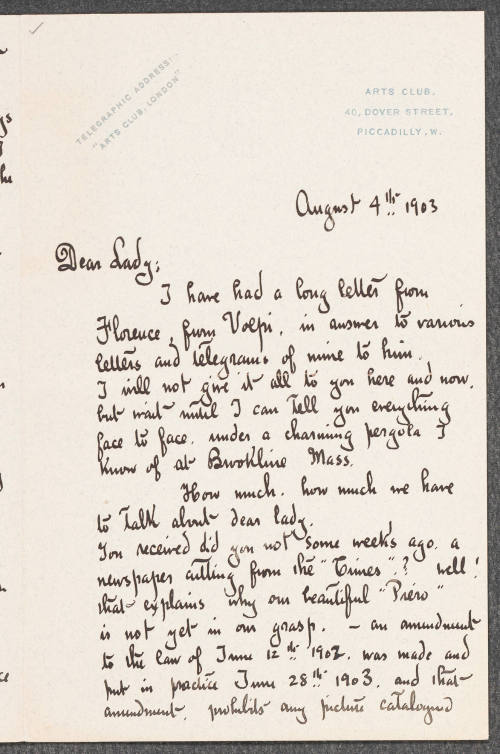 TELEGRAPHIC ADDRESS:
"ARTS CLUB, LONDON"
ARTS CLUB,
40, DOVER STREET,
PICCADILLY, W.
August 4th 1903
Dear Lady;
I have had a long letter from
Florence, from Volpi, in answer to various
letters and telegrams of mine to him.
I will not give it all to you here and now,
but wait until I can tell you everything
face to face, under a charming pergola I
know of at Brookline Mass.
How much, how much we have
to talk about dear lady.
You received did you not some week's ago, a
newspaper cutting from the "Times"? well!
that explains why our beautiful "Piero"
is not yet in our grasp. – an amendment
to the law of June 12th 1902, was made and
put in practice June 28th 1903, and that
amendment, prohibits any picture catalogued